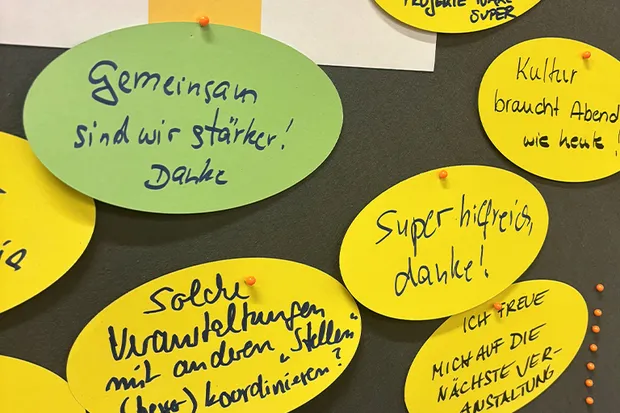 PROJEKTE
SUPER
Gemeinsam
sind wir stärker!
Danke
Kultur
braucht Abend
wie heute!
Super hilfreich,
danke!
Solche
Veranstaltungen
mit anderen "Stellen"
(besser) koordinieren?
ICH FREUE
MICH AUF DIE
NÄCHSTE VER-
ANSTALTUNG